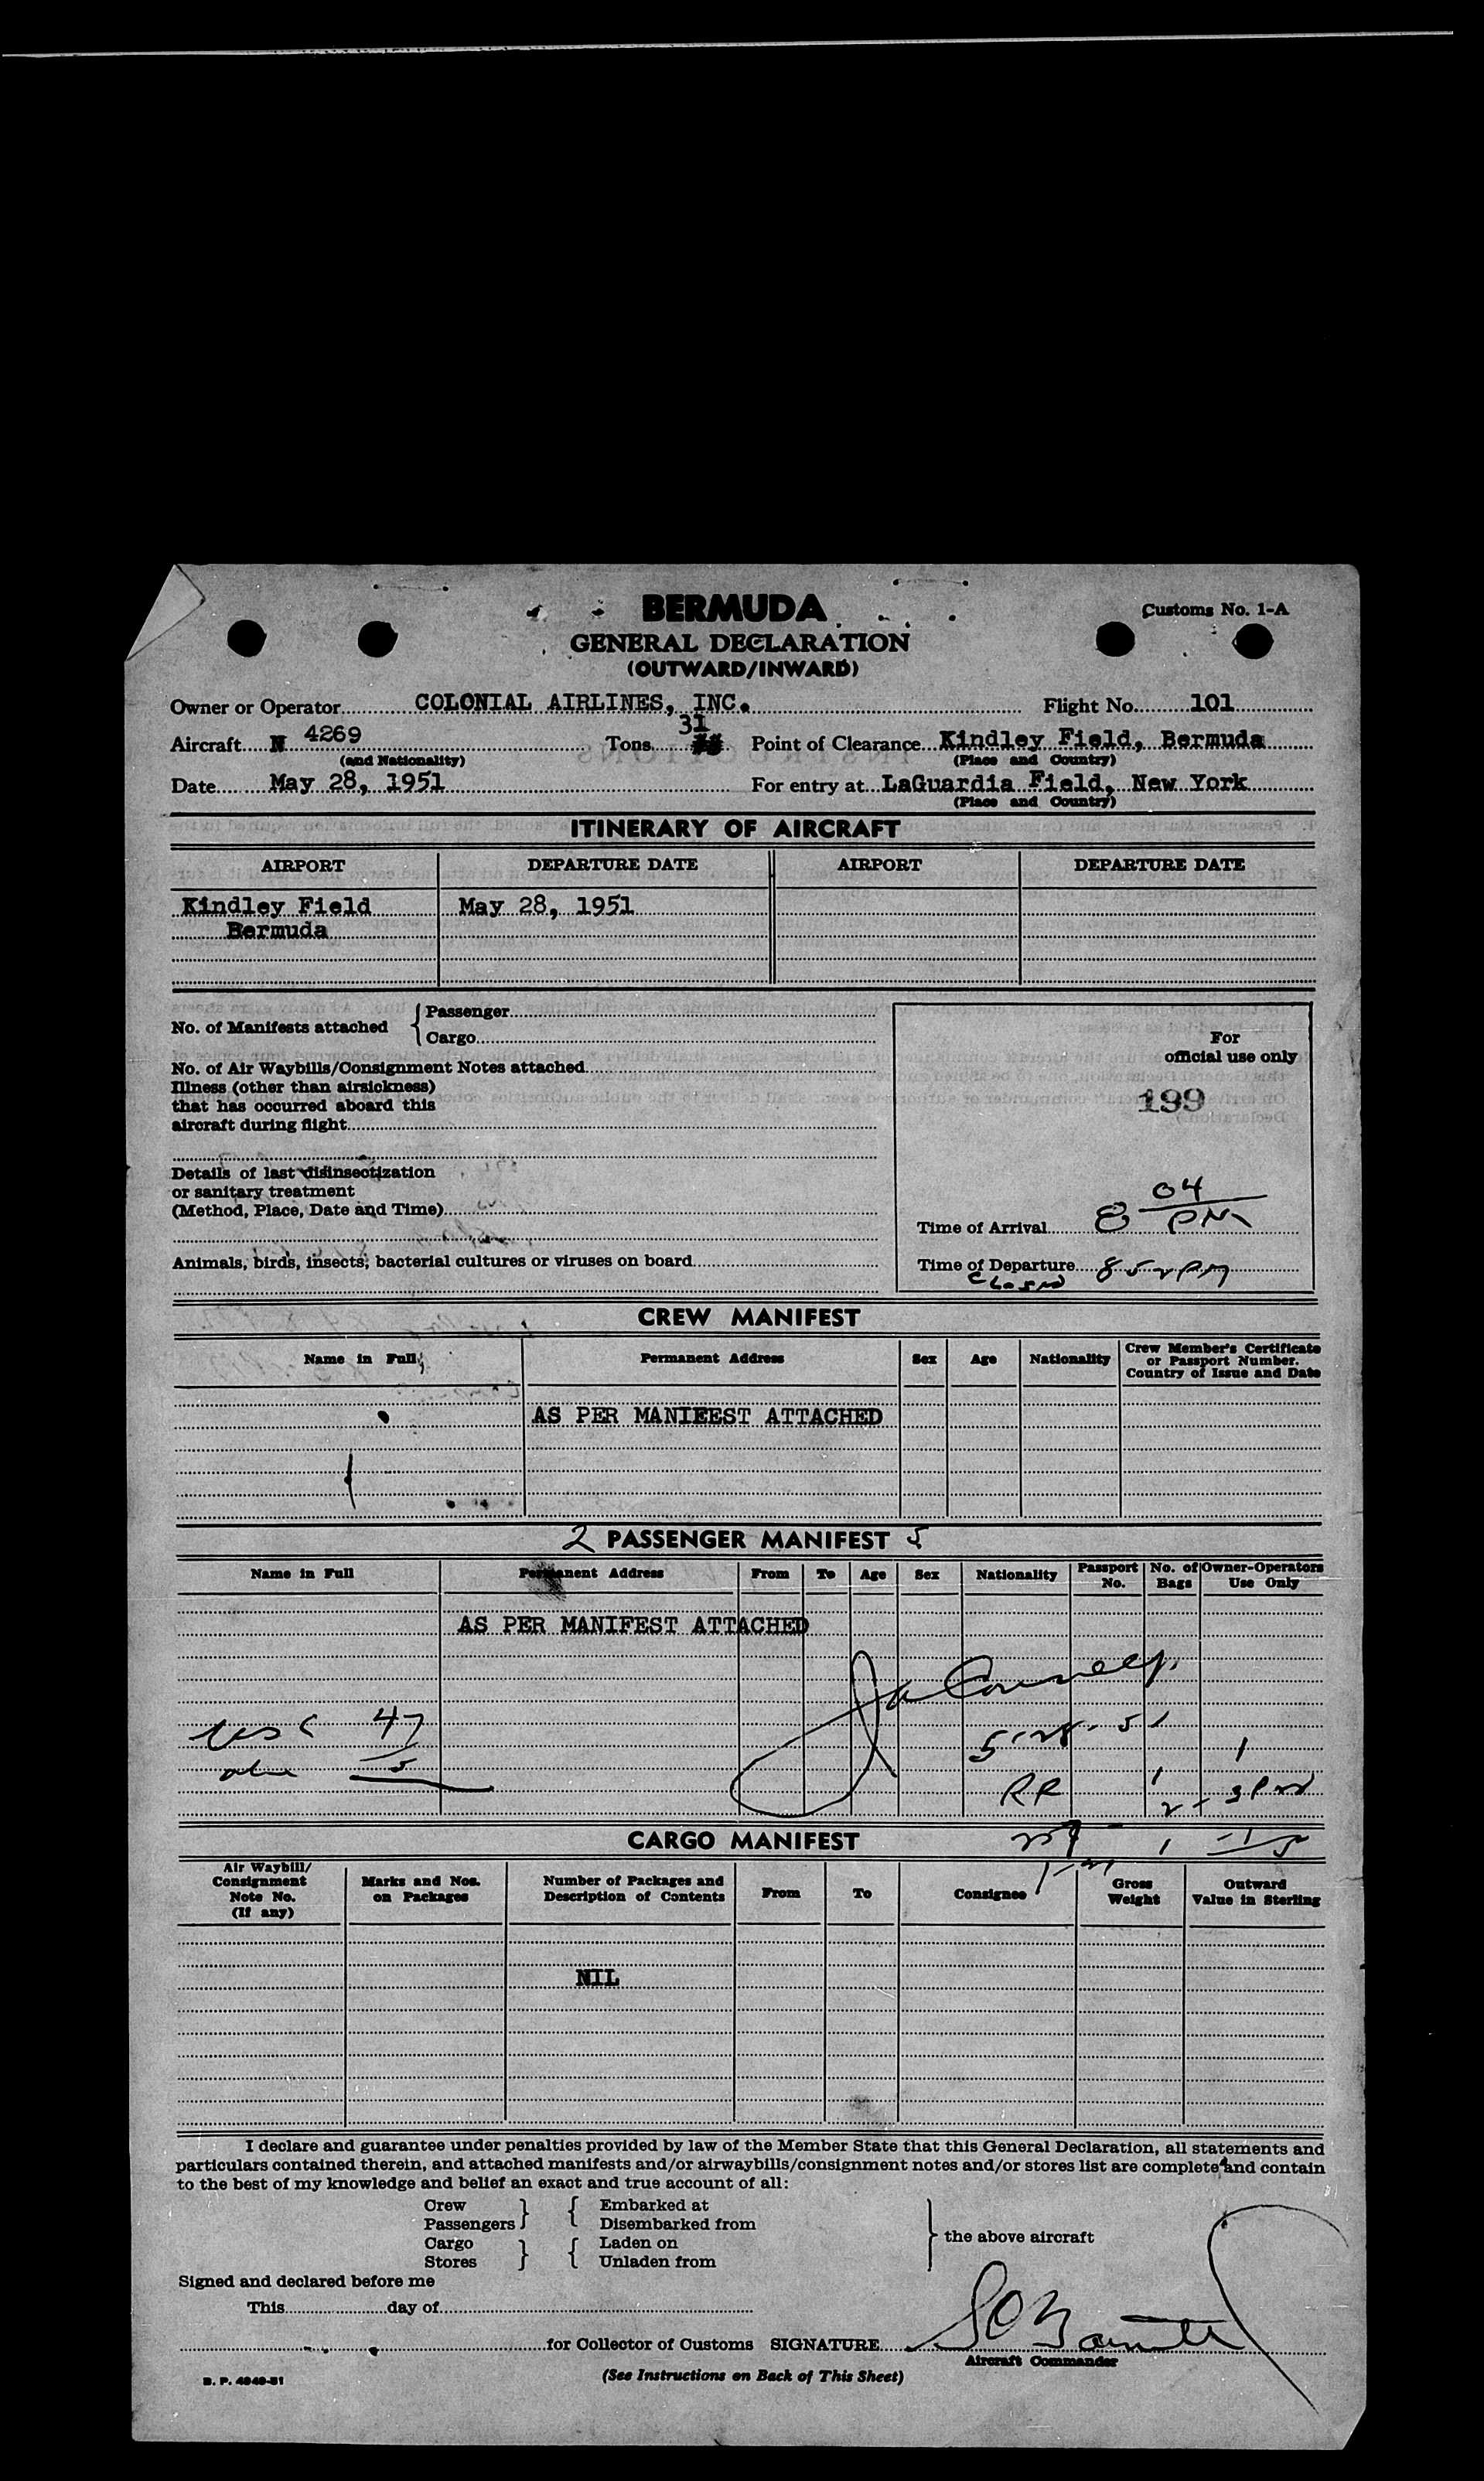 BERMUDA
Customs No. 1-A
GENERAL DECLARATION
(OUTWARD/INWARD)
Owner or Operator COLONIAL AIRLINES, INC. Flight No. 101
Aircraft N 4269 Tons 31 Point of Clearance Kindley Field, Bermuda
(and Nationality) (Place and Country)
Date May 28, 1951 For entry at LaGuardia Field, New York
(Place and Country)
ITINERARY OF AIRCRAFT
AIRPORT DEPARTURE DATE AIRPORT DEPARTURE DATE
Kindley Field May 28, 1951
Bermuda
No. of Manifests attached { Passenger
Cargo
No. of Air Waybills/Consignment Notes attached
Illness (other than airsickness)
that has occurred aboard this
aircraft during flight
Details of last disinsectization
or sanitary treatment
(Method, Place, Date and Time)
Animals, birds, insects, bacterial cultures or viruses on board
For
official use only
199
Time of Arrival 8 04 PM
Time of Departure 852 PM
Closed
CREW MANIFEST
Name in Full Permanent Address Sex Age Nationality Crew Member's Certificate or Passport Number. Country of Issue and Date
AS PER MANIFEST ATTACHED
2 PASSENGER MANIFEST 5
Name in Full Permanent Address From To Age Sex Nationality Passport No. No. of Bags Owner-Operators Use Only
AS PER MANIFEST ATTACHED
USC 47
5-28-51
1
5
RR
1
CARGO MANIFEST
Air Waybill/ Consignment Note No. (If any) Marks and Nos. on Packages Number of Packages and Description of Contents From To Consignee Gross Weight Outward Value in Sterling
NIL
I declare and guarantee under penalties provided by law of the Member State that this General Declaration, all statements and
particulars contained therein, and attached manifests and/or airwaybills/consignment notes and/or stores list are complete and contain
to the best of my knowledge and belief an exact and true account of all:
Crew } { Embarked at
Passengers Disembarked from
Cargo } { Laden on } the above aircraft
Stores Unladen from
Signed and declared before me
This day of
for Collector of Customs SIGNATURE
Aircraft Commander
(See Instructions on Back of This Sheet)
B. P. 4949-51